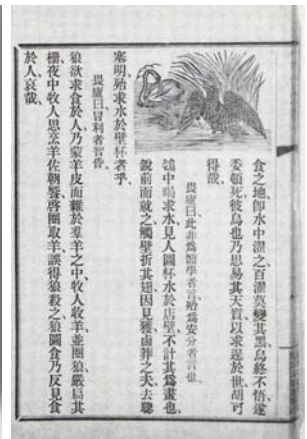 食之地、卽水中濯之、百濯莫變其黑、烏終不悟、遂
委頓死、彼烏也、乃思易其天質、以求逞於世、胡可
得哉、
畏廬曰、此非爲學者言、殆爲安分者言也、
鴿中暍求水、見人圖杯水於店壁、不計其爲畫也、
銳前而就之、觸壁折其翅、因見獲、鹵莽之夫、去聰
塞明、殆求水於壁杯者乎、
畏廬曰、冒利者智昏、
狼欲求食於人、乃蒙羊皮而雜於羣羊之中、牧人收羊、並圈狼、嚴扃其
柵、夜中牧人思烹羊佐朝饔、啓圈取羊、誤得狼、殺之、狼圖食人、乃反見食
於人、哀哉、